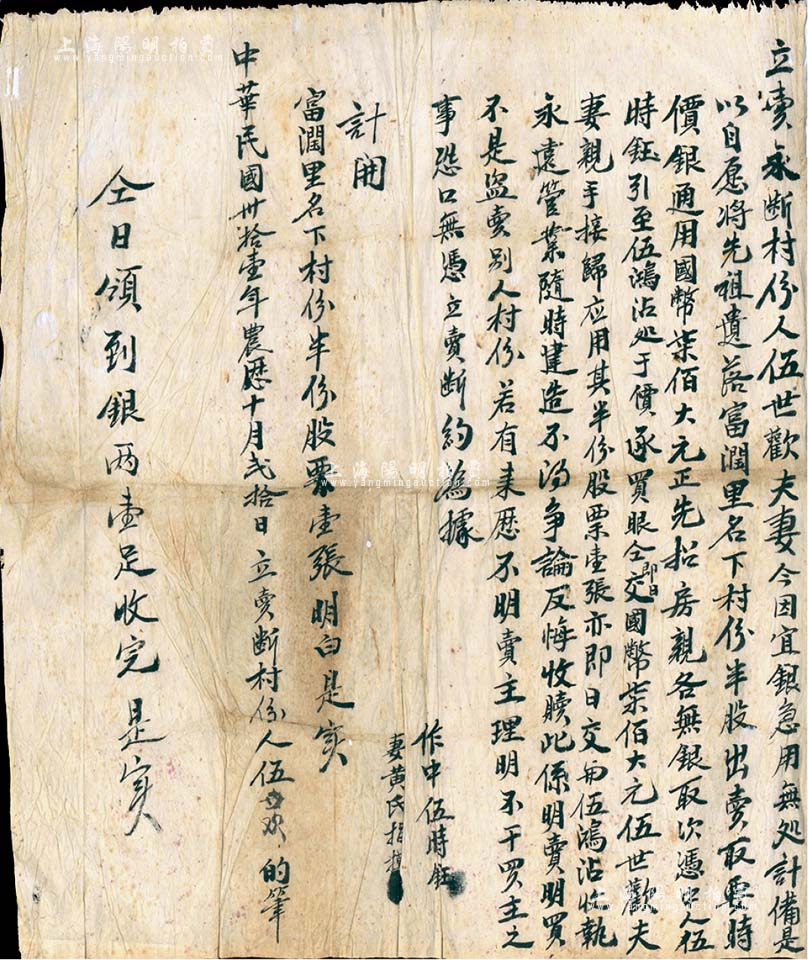 立賣永斷村份人伍世歡夫妻今因宜銀急用無処計備是
以自愿將先祖遺落富潤里名下村份半股出賣取要時
價銀通用國幣柒佰大元正先招房親各無銀取次憑中人伍
時鈺引至伍鴻沾処于價承買眼仝即日交國幣柒佰大元伍世歡夫
妻親手接歸应用其半份股票壹張亦即日交與伍鴻沾收執
永遠管業隨時建造不得爭論反悔收贖此係明賣明買
不是盜賣別人村份若有来歷不明賣主理明不干買主之
事恐口無憑立賣斷約為據
作中伍時鈺
妻黃氏指模
計開
富潤里名下村份半份股票壹張明白是实
中華民國卅拾壹年農歷十月弍拾日立賣斷村份人伍世欢的筆
仝日領到銀两壹足收完是实
上海陽明拍賣
www.yangmingauction.com
上海陽明拍賣
www.yangmingauction.com
上海陽明拍賣
www.yangmingauction.com